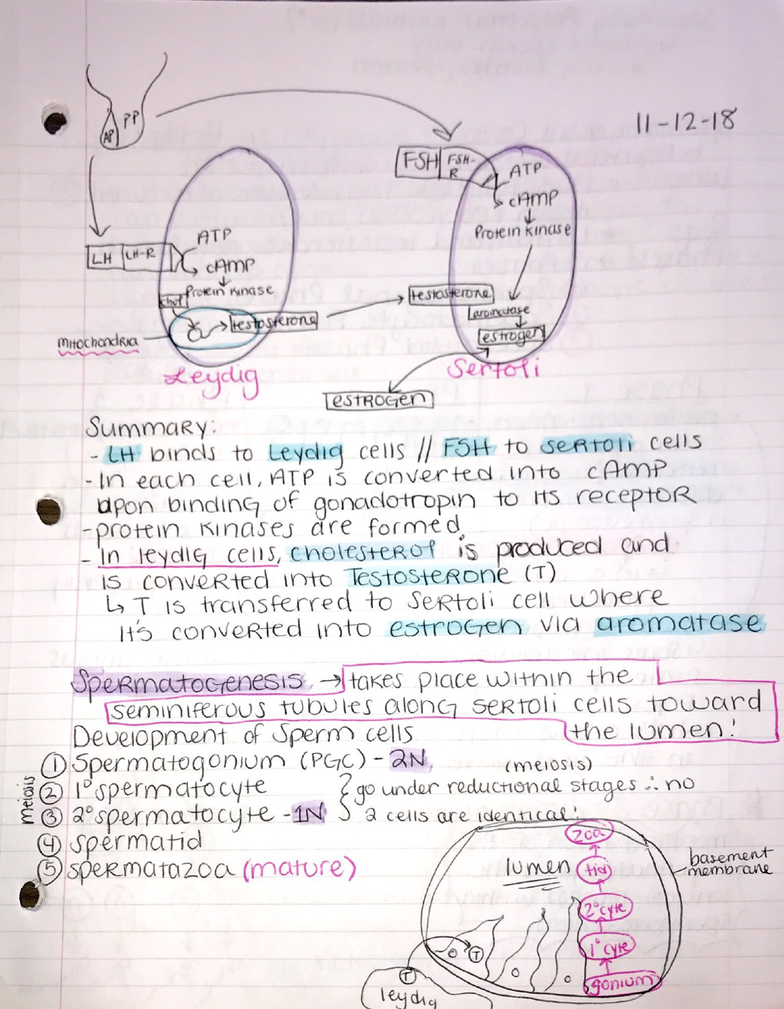 11-12-18
AP PP
FSH FSH-R
ATP
cAMP
Protein kinase
testosterone
aromatase
estrogen
Sertoli
LH LH-R
ATP
cAMP
Protein kinase
chol
testosterone
mitochondria
Leydig
ESTROGEN
Summary:
- LH binds to Leydig cells // FSH to sertoli cells
- In each cell, ATP is converted into cAMP
upon binding of gonadotropin to its receptor
- protein kinases are formed
- In leydig cells, cholesterol is produced and
is converted into Testosterone (T)
↳ T is transferred to Sertoli cell where
it's converted into estrogen via aromatase
Spermatogenesis → takes place within the
seminiferous tubules along sertoli cells toward
the lumen!
Development of Sperm cells
① Spermatogonium (PGC) - 2N
② 1° spermatocyte
③ 2° spermatocyte - 1N
④ spermatid
⑤ spermatazoa (mature)
meiosis
(meiosis)
go under reductional stages ∴ no
2 cells are identical!
zoa
tid
2°cyte
1°cyte
gonium
lumen
basement
membrane
T
T
leydig